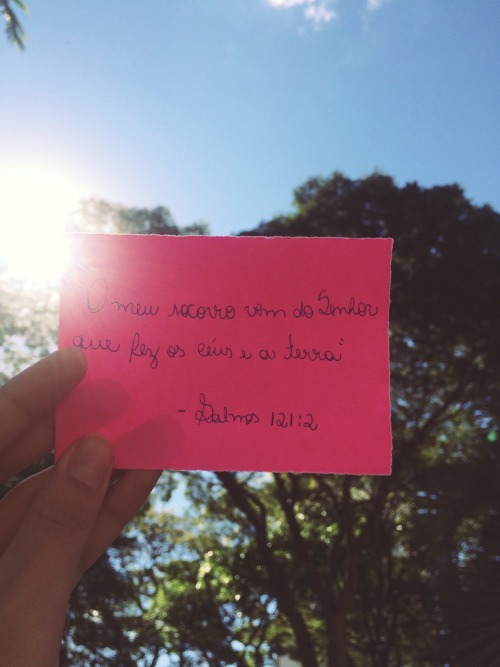 "O meu socorro vem do Senhor
que fez os céus e a terra"
- Salmos 121:2